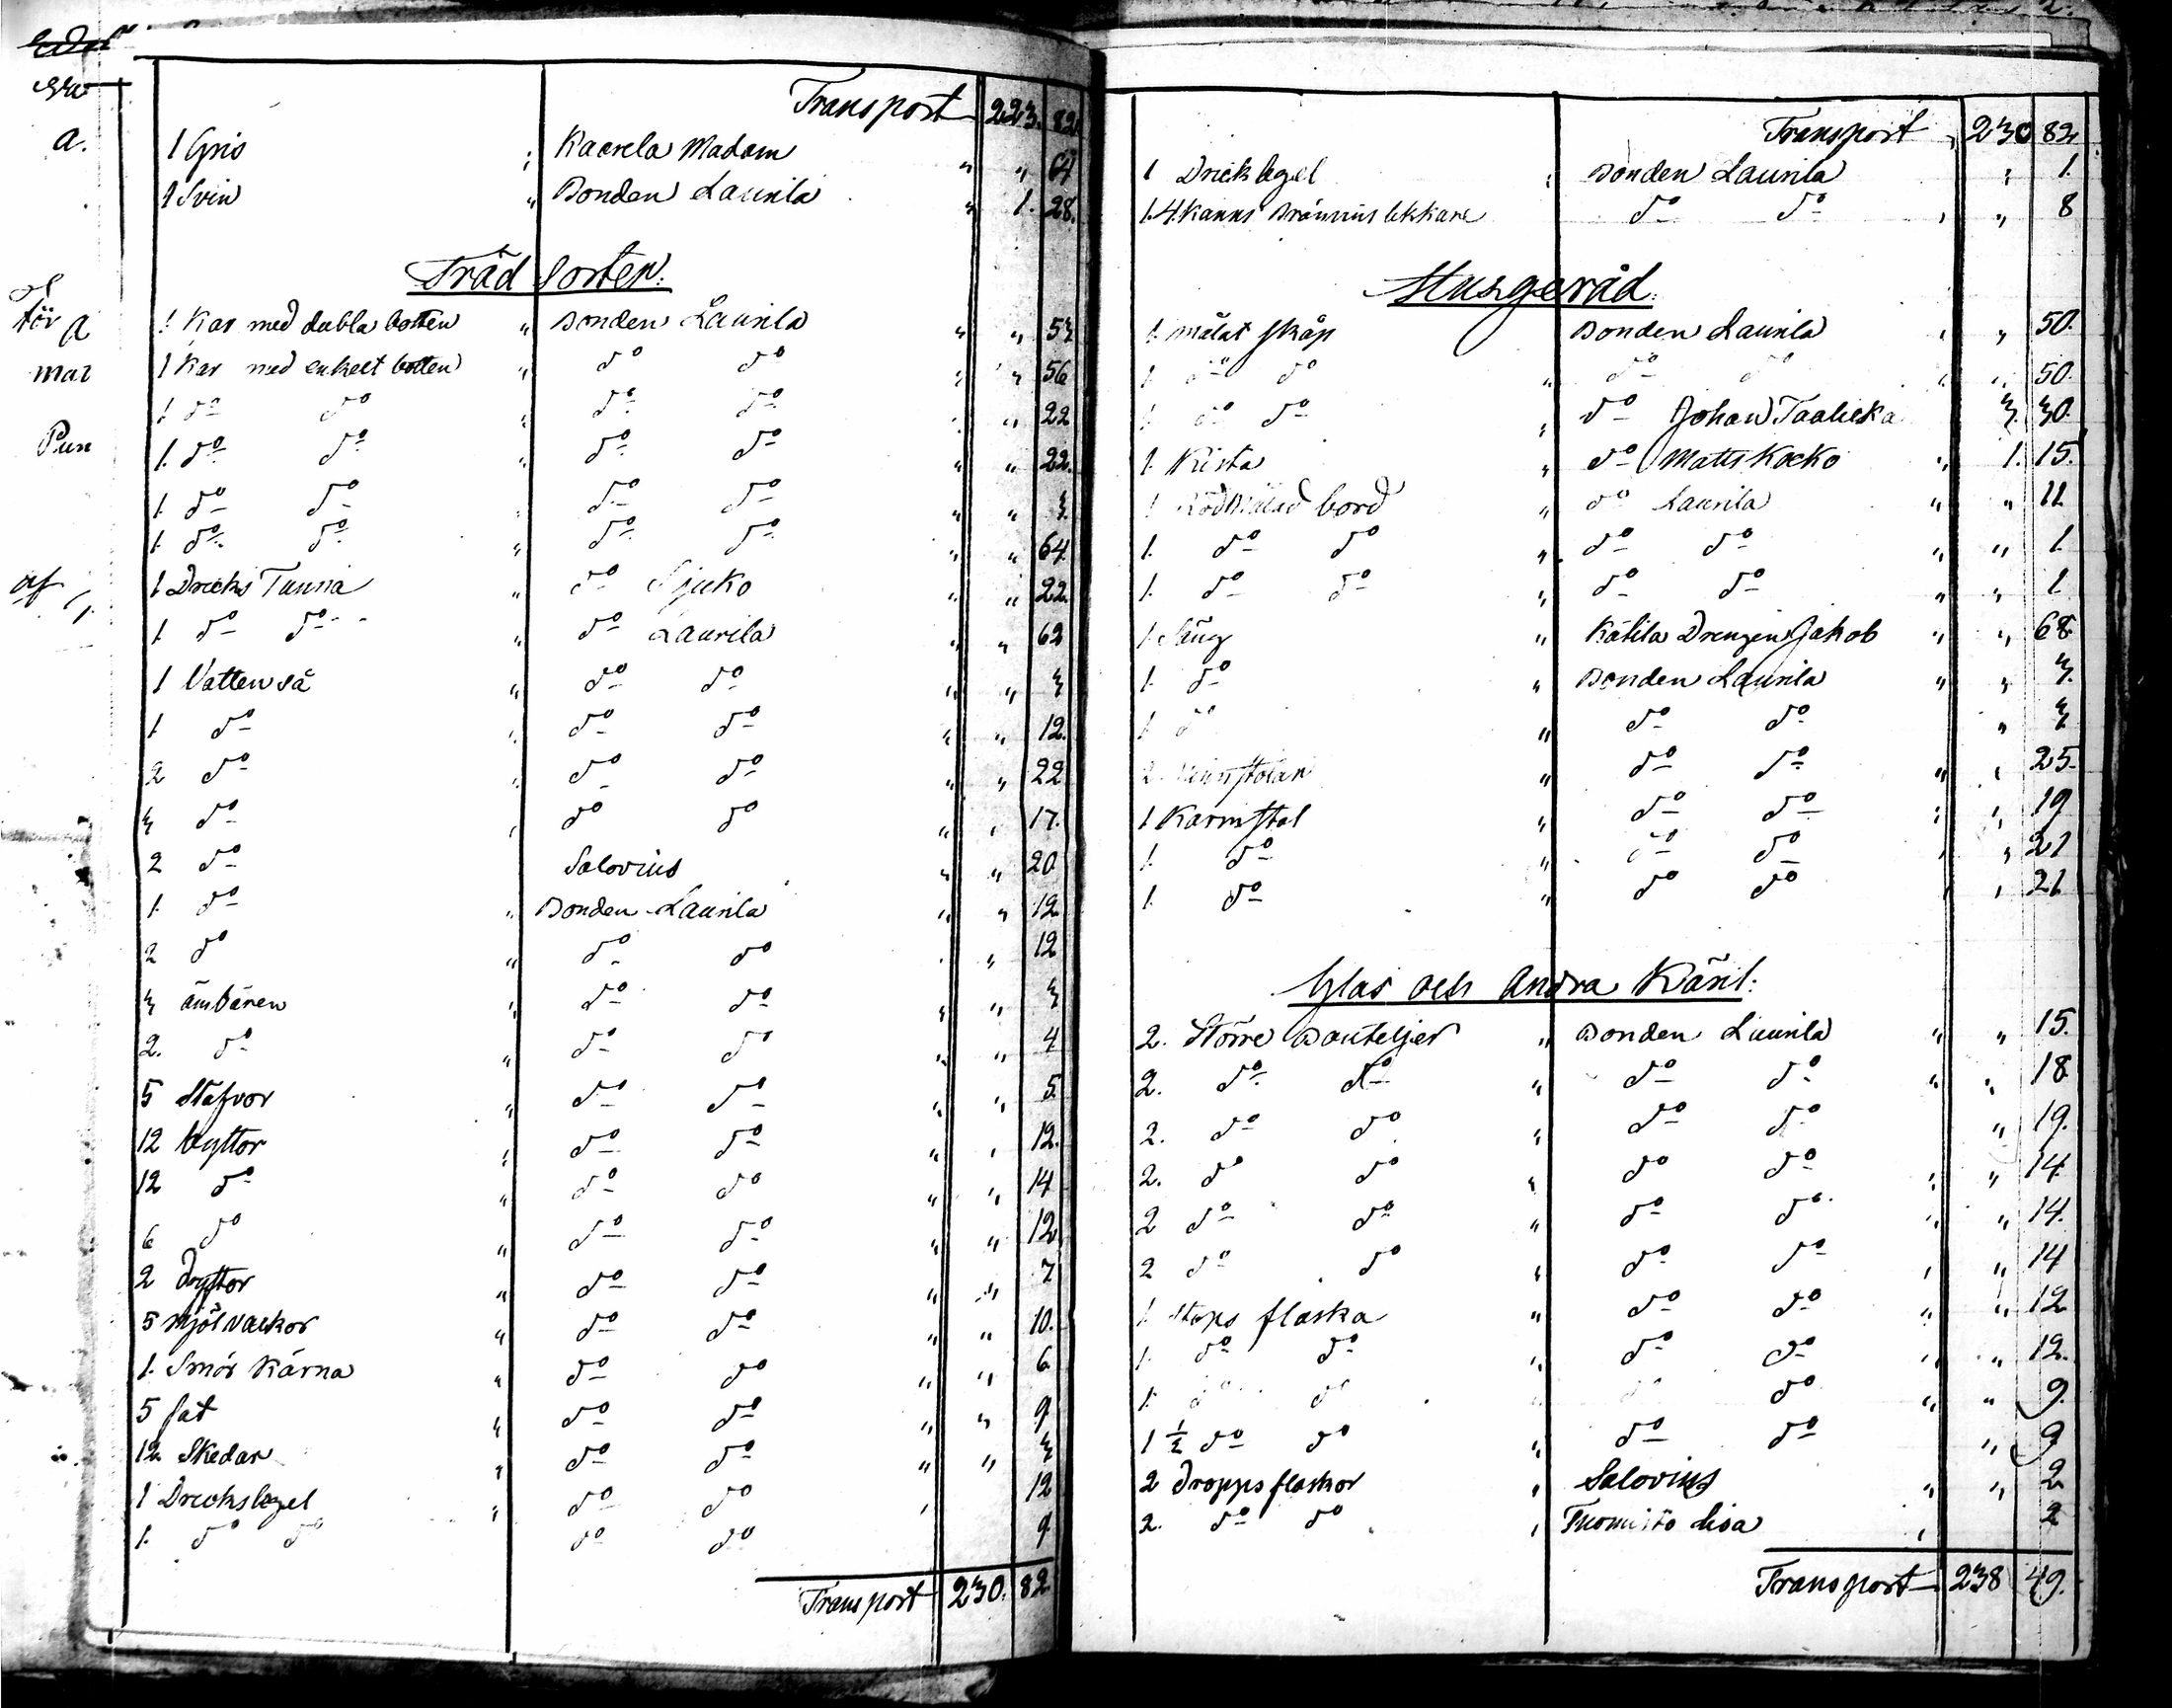 Transport 223. 82.
1 Gris " Kaarela Madam " " 64
1 Svin " Bonden Laurila " 1. 28.
Träd Sorter:
1 Kar med dubla botten " Bonden Laurila " " 53
1 Kar med enkelt botten " do do " " 56
1 do do " do do " " 22
1. do do " do do " " 22.
1 do do " do do " " 3.
1. do do " do do " " 64.
1 Dricks Tunna " do Sjuko " " 22.
1 do do " do Laurila " " 62
1 Vatten så " do do " " 3
1 do " do do " " 12.
2 do " do do " " 22
3 do " do do " " 17.
2 do Salovius " " 20
1. do " Bonden Laurila " " 12
2 do " do do " " 12
3 ämbären " do do " " 3
2. do " do do " " 4
5 Stäfvor " do do " " 5
12 byttor " do do " " 12.
12 do " do do " " 14
6 do " do do " " 12
2 dyttor " do do " " 7
5 mjöl vackor " do do " " 10.
1. Smör Kärna " do do " " 6
5 fat " do do " " 9
12 Skedar " do do " " 3
1 Drickslegel " do do " 12
1. do do do do 9
Transport 230. 82
Transport " 230 82
1 Drickslegel " Bonden Laurila " 1.
1. 4 Kanns Brännvins lekkare do do " " 8
Husgeråd.
1. målat skåp Bonden Laurila " " 50.
1. do do " do do " " 50.
1. do do " do Johan Taalicka 3. 30.
1. Kista " do Matts Kocko " 1. 15.
1 Röd Målad bord " do Laurila " " 11
1. do do " do do " " 1.
1. do do " do do " " 1
1. Säng " Kätila Drengen Jakob " " 68
1. do " Bonden Laurila " " 3.
1 do " do do " 3
2. " do do " " 25.
1 Karmstol " do do " " 19
1. do " do do " " 21
1. do " do do " " 21
Glas och Andra Käril:
2. Större Bouteljer " Bonden Laurila " " 15.
2. do do " do do " " 18
2. do do " do do " 19.
2. do do " do do " " 14
2 do do " do do " " 14.
2 do do " do do " " 14
1 Stops flaska " do do " " 12
1. do do " do do " " 12.
1. do do do do " " 9.
1 ½ do do " do do " 9
2 Dropps flaskor " Salovius " " 2
2. do do " Tuomisto Lisa " 2
Transport 238 49.